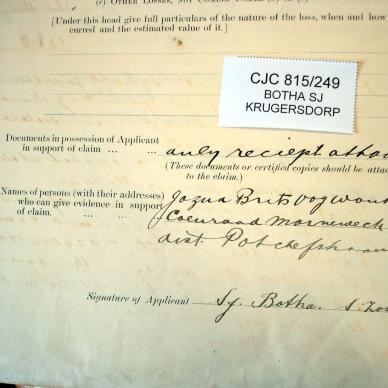 (c) OTHER LOSSES, NOT COMING UNDER
[Under this head give full particulars of the nature of the loss, when and how
curred and the estimated value of it.]
CJC 815/249
BOTHA SJ
KRUGERSDORP
Documents in possession of Applicant
in support of claim ... ... only reciept attac
(These documents or certified copies should be atta
to the claim.)
Names of persons (with their addresses)
who can give evidence in support
of claim. ... ...
Jozua Brits
Coenraad
dist. Potchefstroom
Signature of Applicant Sg. Botha.